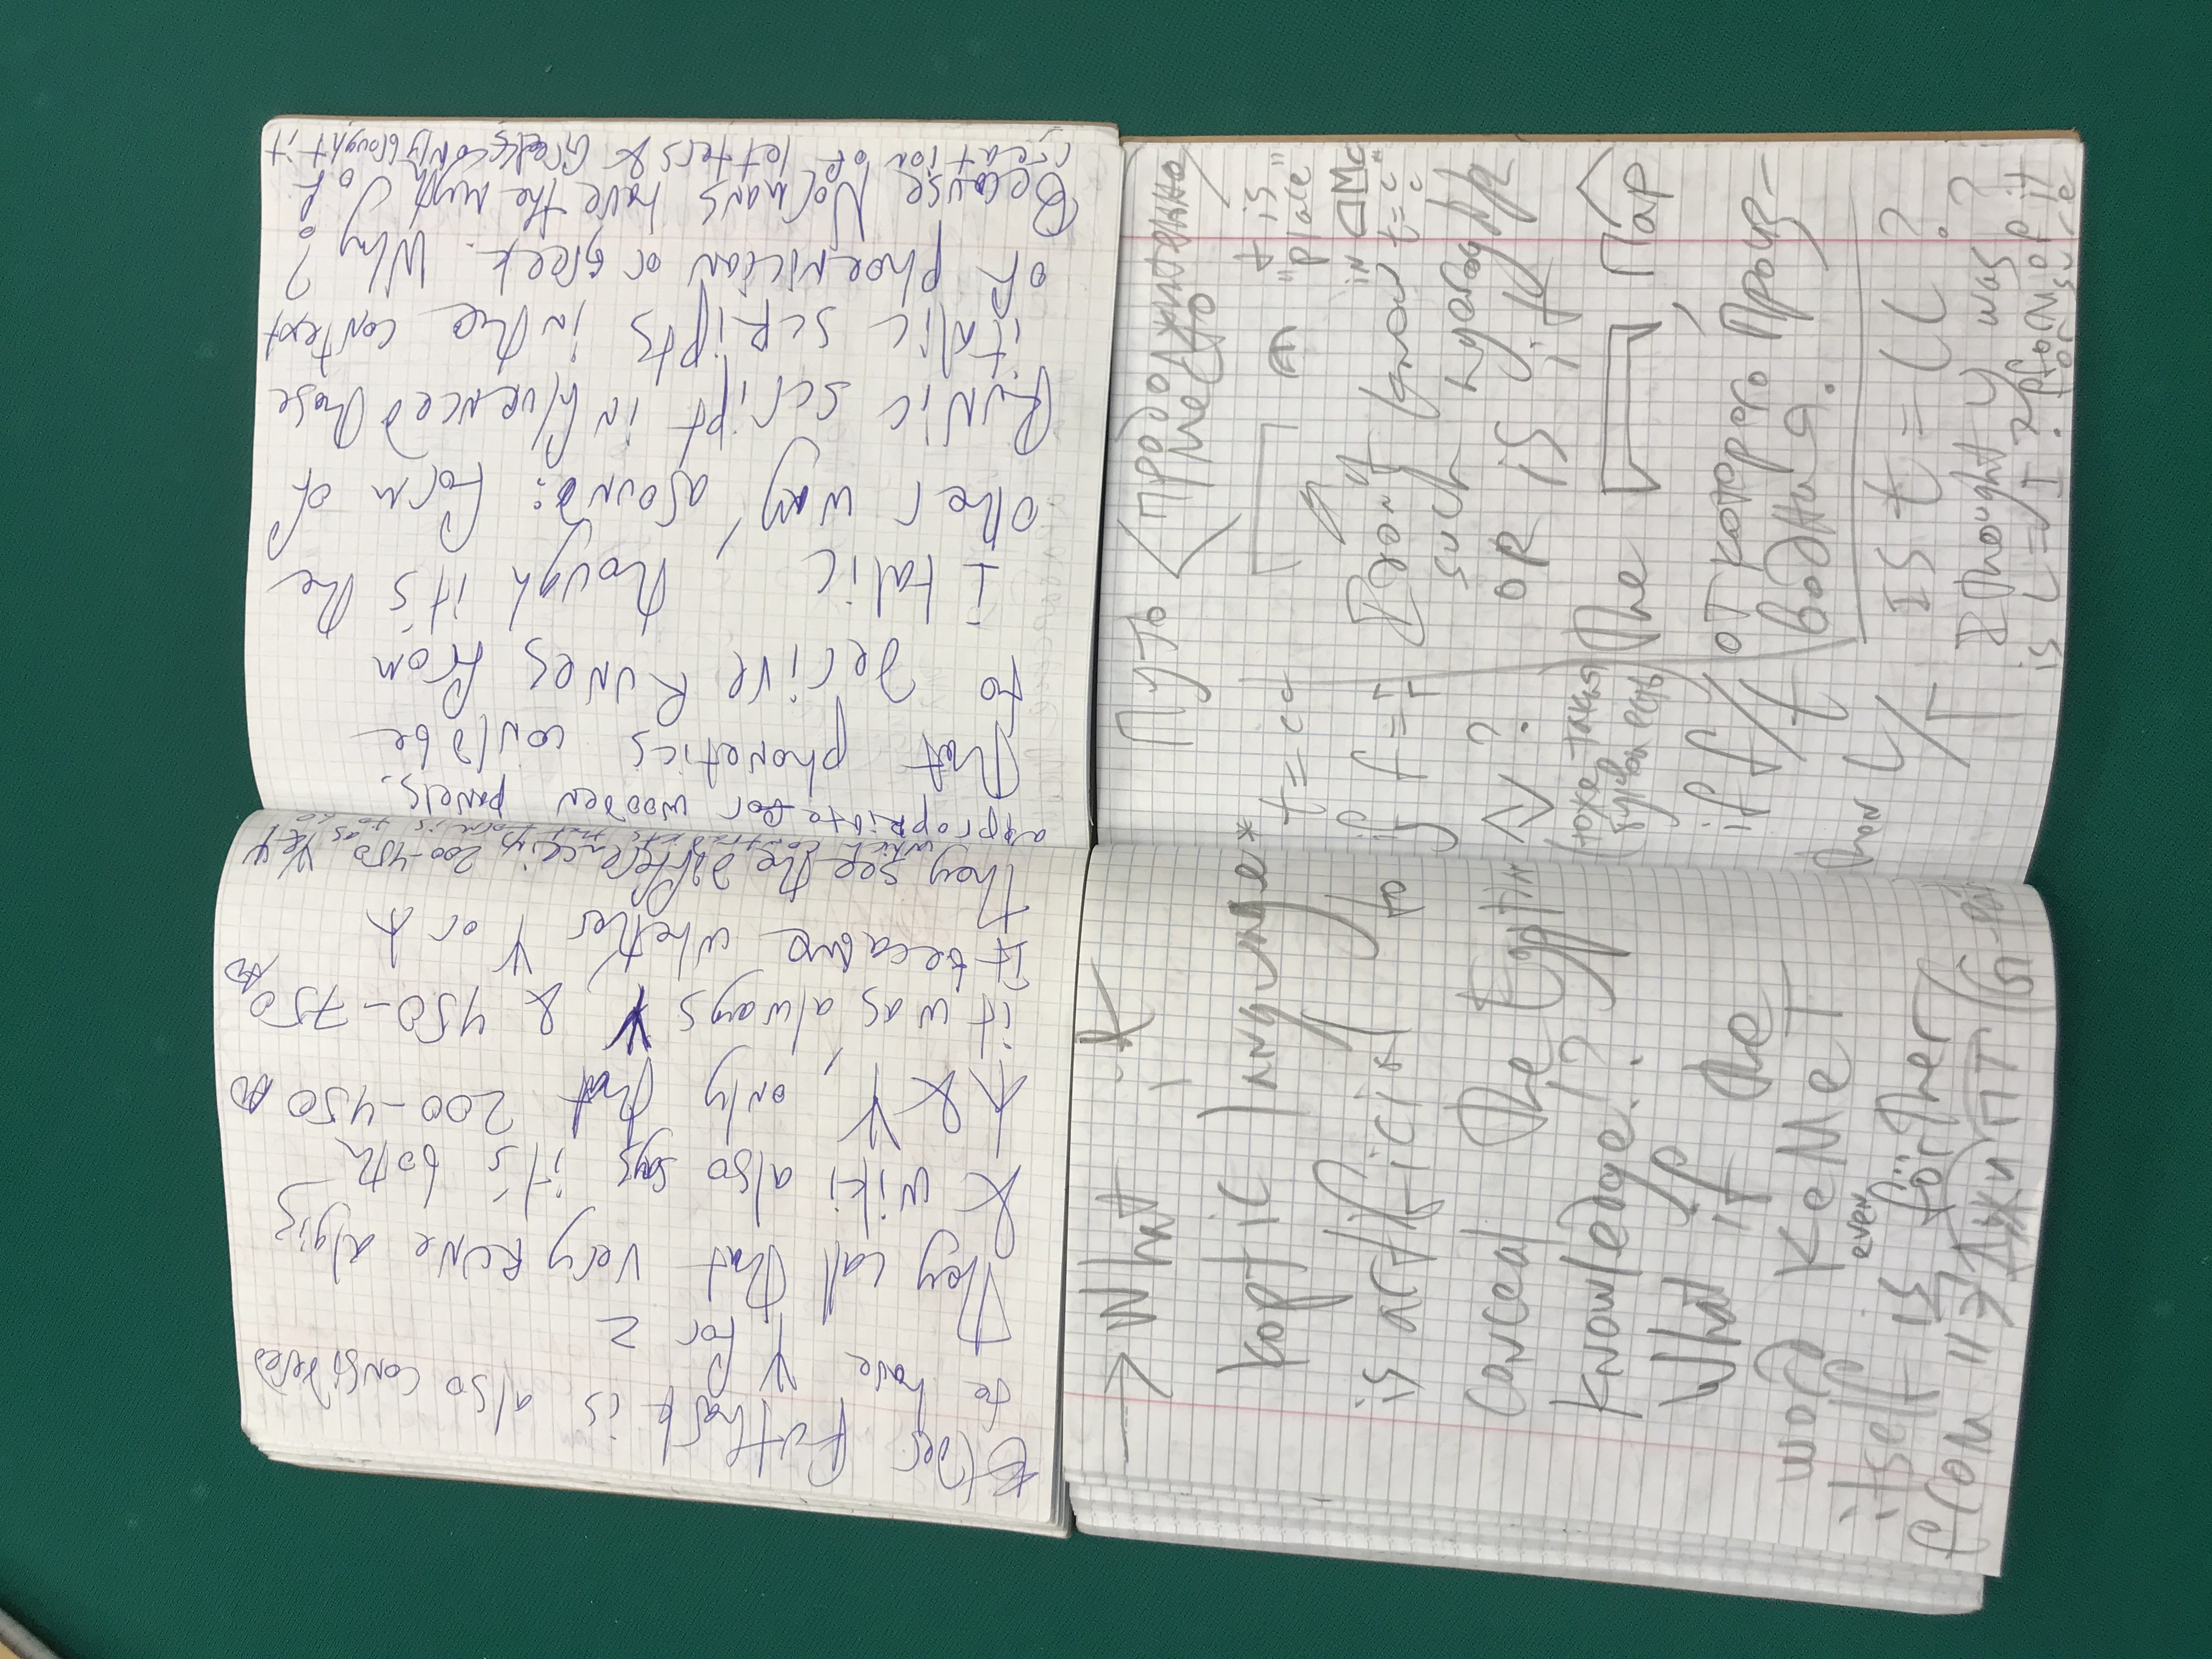 Elder Futhark is also considered
to have ᛉ for z
They call that very Rune algiz
& wiki also says it's both
ᛦ & ᛉ, only that 200-450 AD
it was always ᛉ & 450-750 AD
It became whether ᛉ or ᛦ
they see the differencein 200-450 as
appropriate for wooden panels.
That phonetics could be
to derive Runes from
Italic, though it's the
other way around: form of
Runic script influenced those
italic scripts in the context
of phoenician or greek. Why?
Because Normans have the myth of
creation of letters & Greeks only brought it
→ What if
koptic language*
is artificial to
conceal the Egyptian
knowledge!?
What if the
word KeMeT
itself is even förther
from "ЭДжиПТ
Путь
продолжительно
место
t = cc
"t is
place"
if f = I
I don't know
such hyeroglyph
OR is it
?
(тоже такая
буква есть)
the Пар,
от которого произ-
водная.
if f/t
then L/Г
Is t = LL ?
I thought y was ?
is L = I ? pform of it
for sure